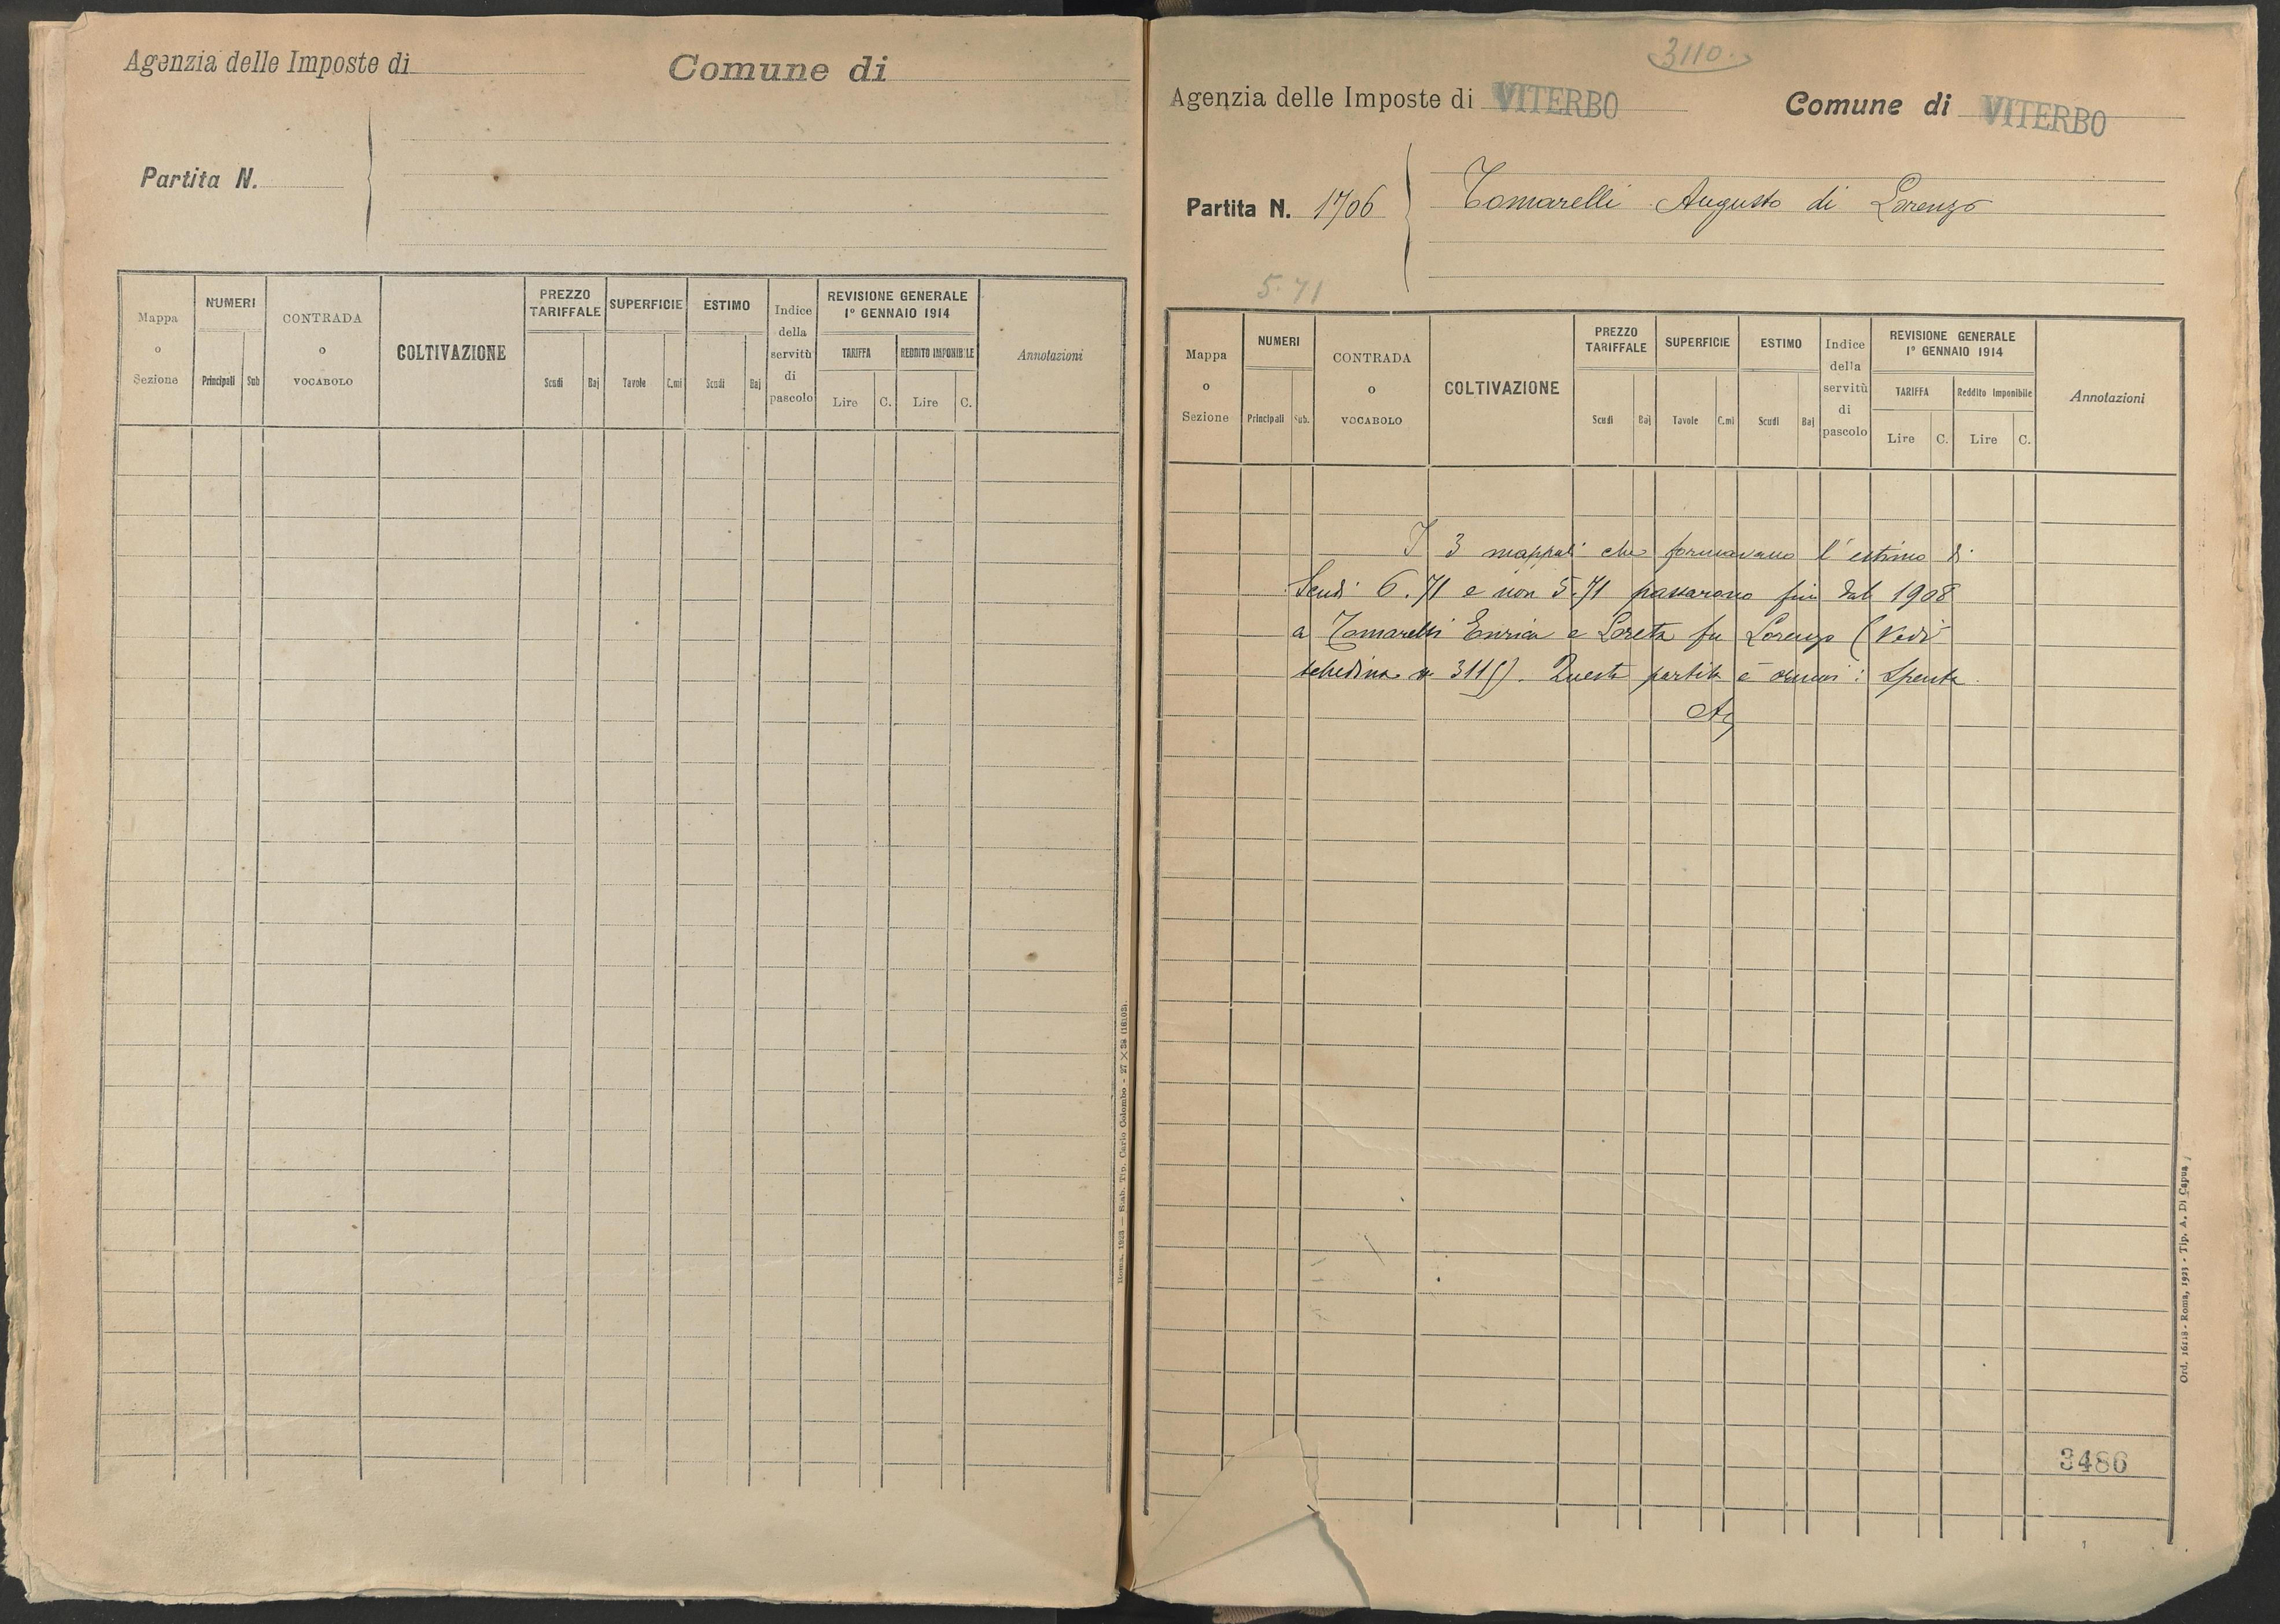 Agenzia delle Imposte di
Comune di
Partita N.
Mappa o Sezione
NUMERI
Principali
Sub
CONTRADA o VOCABOLO
COLTIVAZIONE
PREZZO TARIFFALE
Scudi
Baj
SUPERFICIE
Tavole
C.mi
ESTIMO
Scudi
Baj
Indice della servitù di pascolo
REVISIONE GENERALE
1° GENNAIO 1914
TARIFFA
Lire
C.
REDDITO IMPONIBILE
Lire
C.
Annotazioni
Roma, 1923 — Stab. Tip. Carlo Colombo - 27 X 38 (16103).
3110.
Agenzia delle Imposte di VITERBO
Comune di VITERBO
Partita N. 1706
Tomarelli Augusto di Lorenzo
5.71
Mappa o Sezione
NUMERI
Principali
Sub.
CONTRADA o VOCABOLO
COLTIVAZIONE
PREZZO TARIFFALE
Scudi
Baj
SUPERFICIE
Tavole
C.mi
ESTIMO
Scudi
Baj
Indice della servitù di pascolo
REVISIONE GENERALE
1° GENNAIO 1914
TARIFFA
Lire
C.
Reddito Imponibile
Lire
C.
Annotazioni
I 3 mappali che formavano l'estimo di
Scudi 6.71 e non 5.71 passarono fin dal 1908
a Tomarelli Enrica e Loreta fu Lorenzo (Vedi
schedina n. ). Questa partita è ormai : spenta.
3486
Ord. 16118 - Roma, 1923 - Tip. A. Di Capua